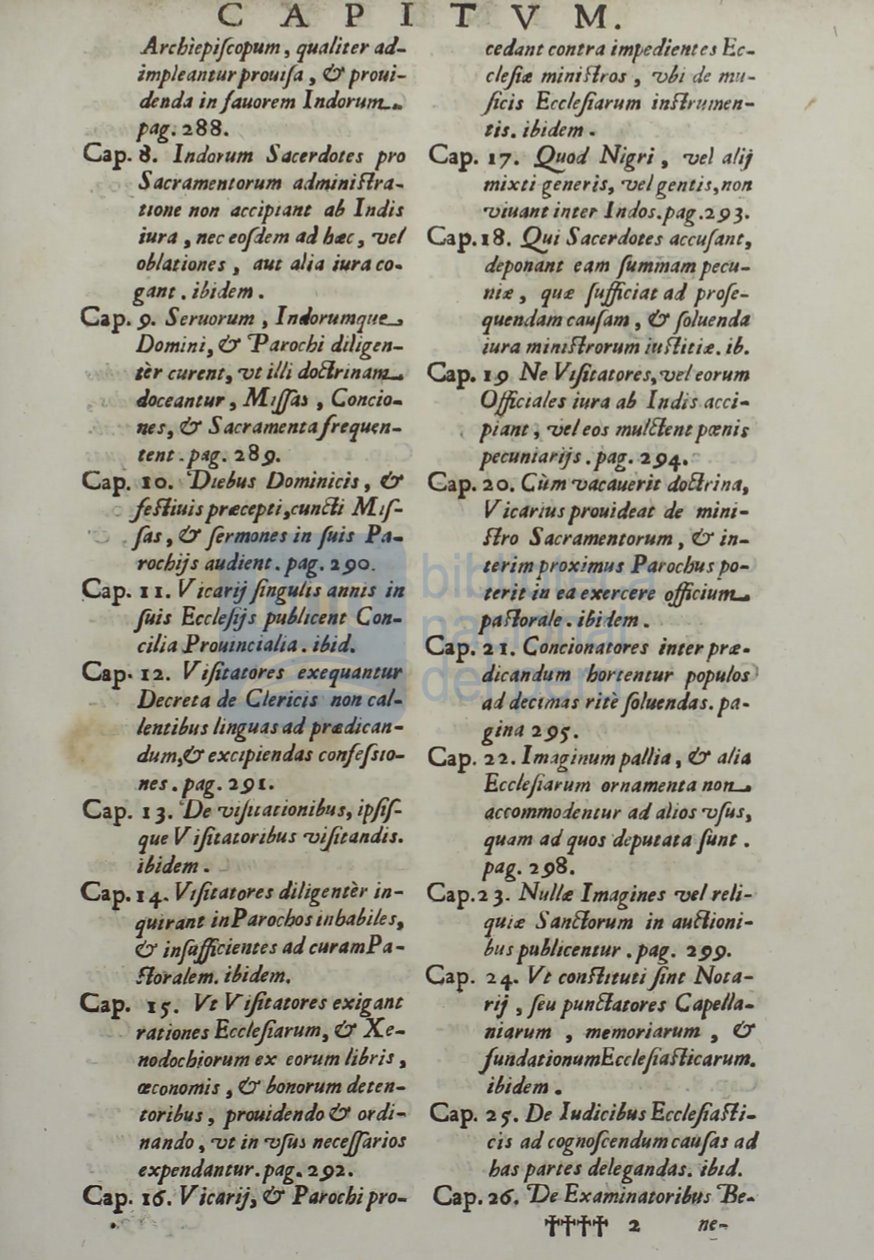 CAPITVM.
Archiepiſcopum, qualiter ad-
impleantur prouiſa, & proui-
denda in fauorem Indorum.
pag. 288.
Cap. 8. Indorum Sacerdotes pro
Sacramentorum adminiſtra-
tione non accipiant ab Indis
iura, nec eoſdem ad hæc, vel
oblationes, aut alia iura co-
gant. ibidem.
Cap. 9. Seruorum, Indorumque
Domini, & Parochi diligen-
tèr curent, vt illi doctrinam
doceantur, Miſſas, Concio-
nes, & Sacramenta frequen-
tent. pag. 289.
Cap. 10. Diebus Dominicis, &
feſtiuis præcepti, cuncti Miſ-
ſas, & ſermones in ſuis Pa-
rochijs audient. pag. 290.
Cap. 11. Vicarij ſingulis annis in
ſuis Eccleſijs publicent Con-
cilia Prouincialia. ibid.
Cap. 12. Viſitatores exequantur
Decreta de Clericis non cal-
lentibus linguas ad prædican-
dum, & excipiendas confeſsio-
nes. pag. 291.
Cap. 13. De viſitationibus, ipſiſ-
que Viſitatoribus viſitandis.
ibidem.
Cap. 14. Viſitatores diligentèr in-
quirant in Parochos inhabiles,
& inſufficientes ad curam Pa-
ſtoralem. ibidem.
Cap. 15. Vt Viſitatores exigant
rationes Eccleſiarum, & Xe-
nodochiorum ex eorum libris,
œconomis, & bonorum deten-
toribus, prouidendo & ordi-
nando, vt in vſus neceſſarios
expendantur. pag. 292.
Cap. 16. Vicarij, & Parochi pro-
cedant contra impedientes Ec-
cleſiæ miniſtros, vbi de mu-
ſicis Eccleſiarum inſtrumen-
tis. ibidem.
Cap. 17. Quod Nigri, vel alij
mixti generis, vel gentis, non
viuant inter Indos. pag. 293.
Cap. 18. Qui Sacerdotes accuſant,
deponant eam ſummam pecu-
niæ, quæ ſufficiat ad proſe-
quendam cauſam, & ſoluenda
iura miniſtrorum iuſtitiæ. ib.
Cap. 19 Ne Viſitatores, vel eorum
Officiales iura ab Indis acci-
piant, vel eos mulctent pœnis
pecuniarijs. pag. 294.
Cap. 20. Cùm vacauerit doctrina,
Vicarius prouideat de mini-
ſtro Sacramentorum, & in-
terim proximus Parochus po-
terit in ea exercere officium
paſtorale. ibidem.
Cap. 21. Concionatores inter præ-
dicandum hortentur populos
ad decimas ritè ſoluendas. pa-
gina 295.
Cap. 22. Imaginum pallia, & alia
Eccleſiarum ornamenta non
accommodentur ad alios vſus,
quam ad quos deputata ſunt.
pag. 298.
Cap. 23. Nullæ Imagines vel reli-
quiæ Sanctorum in auctioni-
bus publicentur. pag. 299.
Cap. 24. Vt conſtituti ſint Nota-
rij, ſeu punctatores Capella-
niarum, memoriarum, &
fundationum Eccleſiaſticarum.
ibidem.
Cap. 25. De Iudicibus Eccleſiaſti-
cis ad cognoſcendum cauſas ad
has partes delegandas. ibid.
Cap. 26. De Examinatoribus Be-
†††† 2 ne-